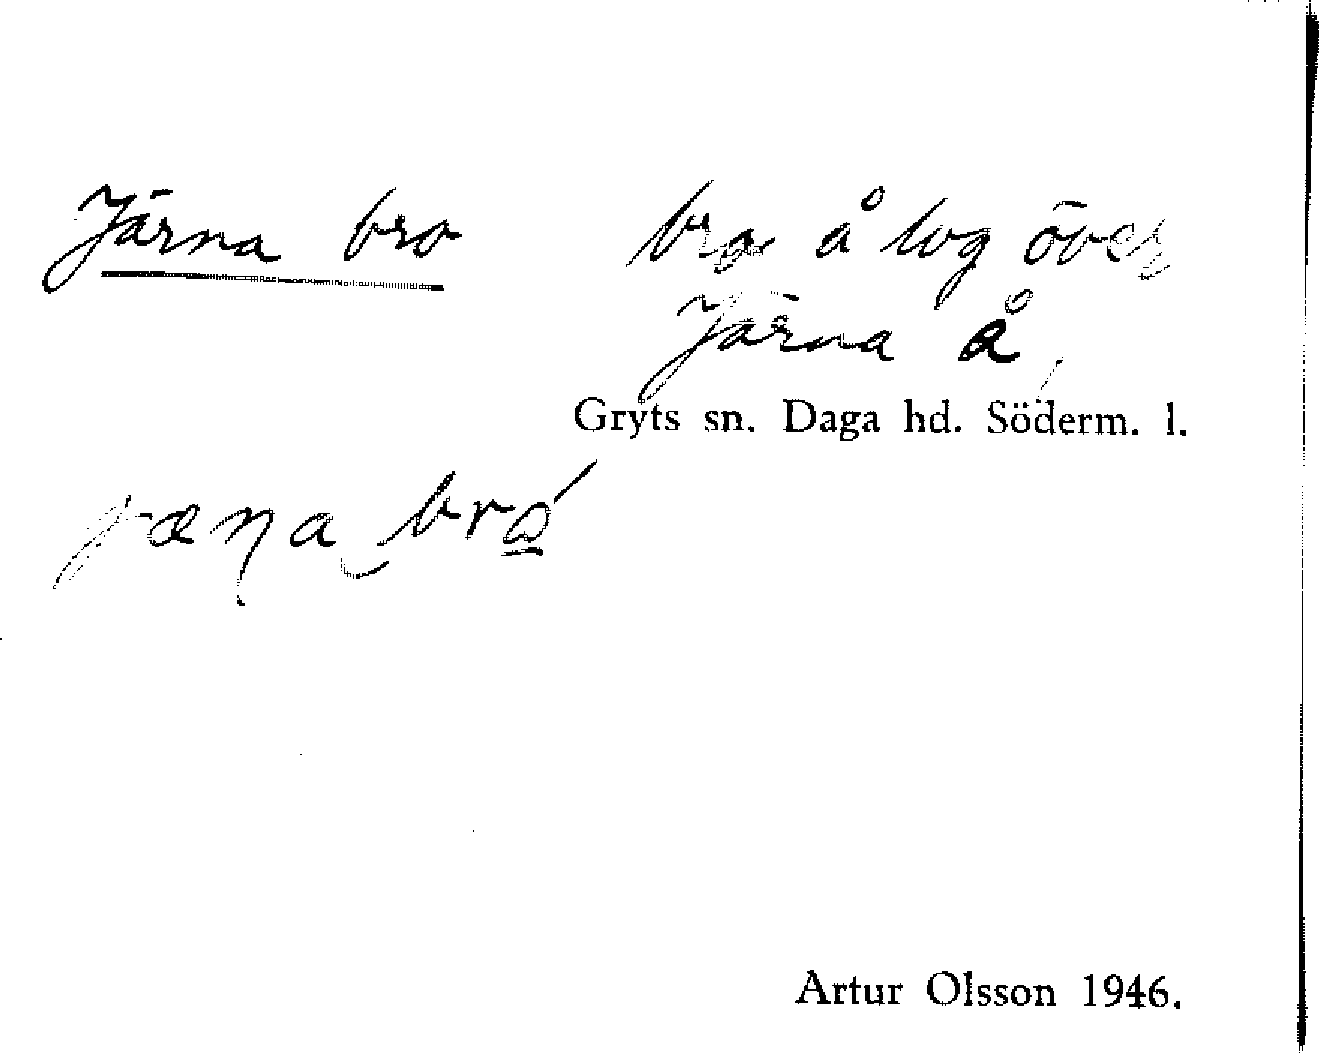 Järna bro bro å lvg över
Järna å
Gryts sn. Daga hd. Söderm. l.
jæṇa‿bro̲´
Artur Olsson 1946.